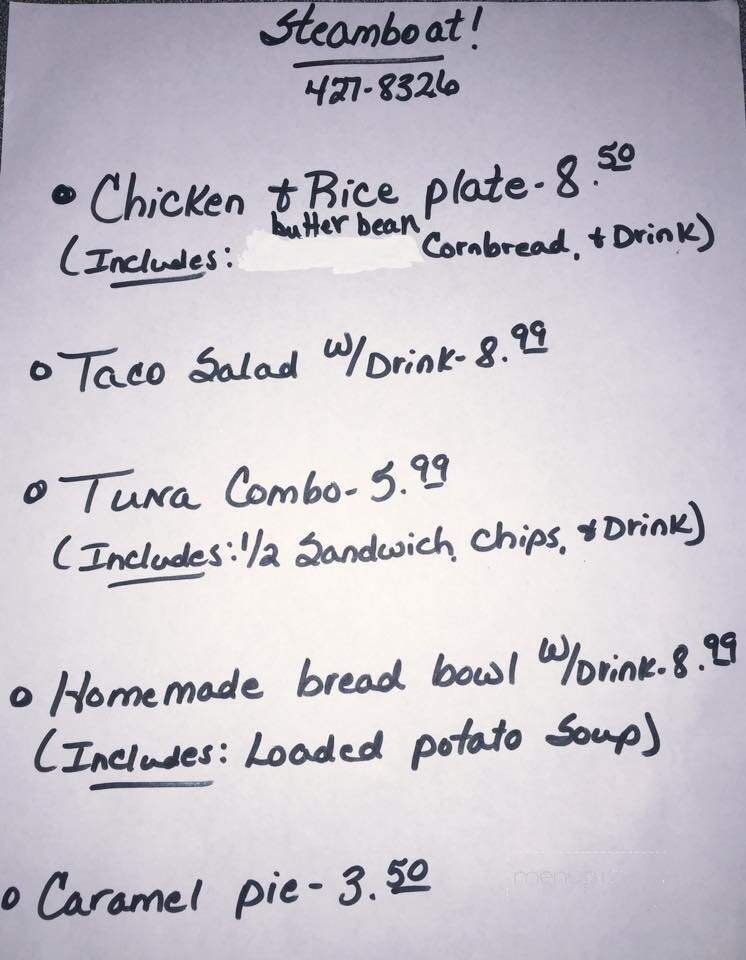 Steamboat!
427-8326
• Chicken & Rice plate - 8.50
butter bean
(Includes: Cornbread, & Drink)
• Taco Salad w/Drink - 8.99
• Tuna Combo - 5.99
(Includes: 1/2 Sandwich, Chips, & Drink)
• Homemade bread bowl w/Drink - 8.99
(Includes: Loaded potato Soup)
• Caramel pie - 3.50